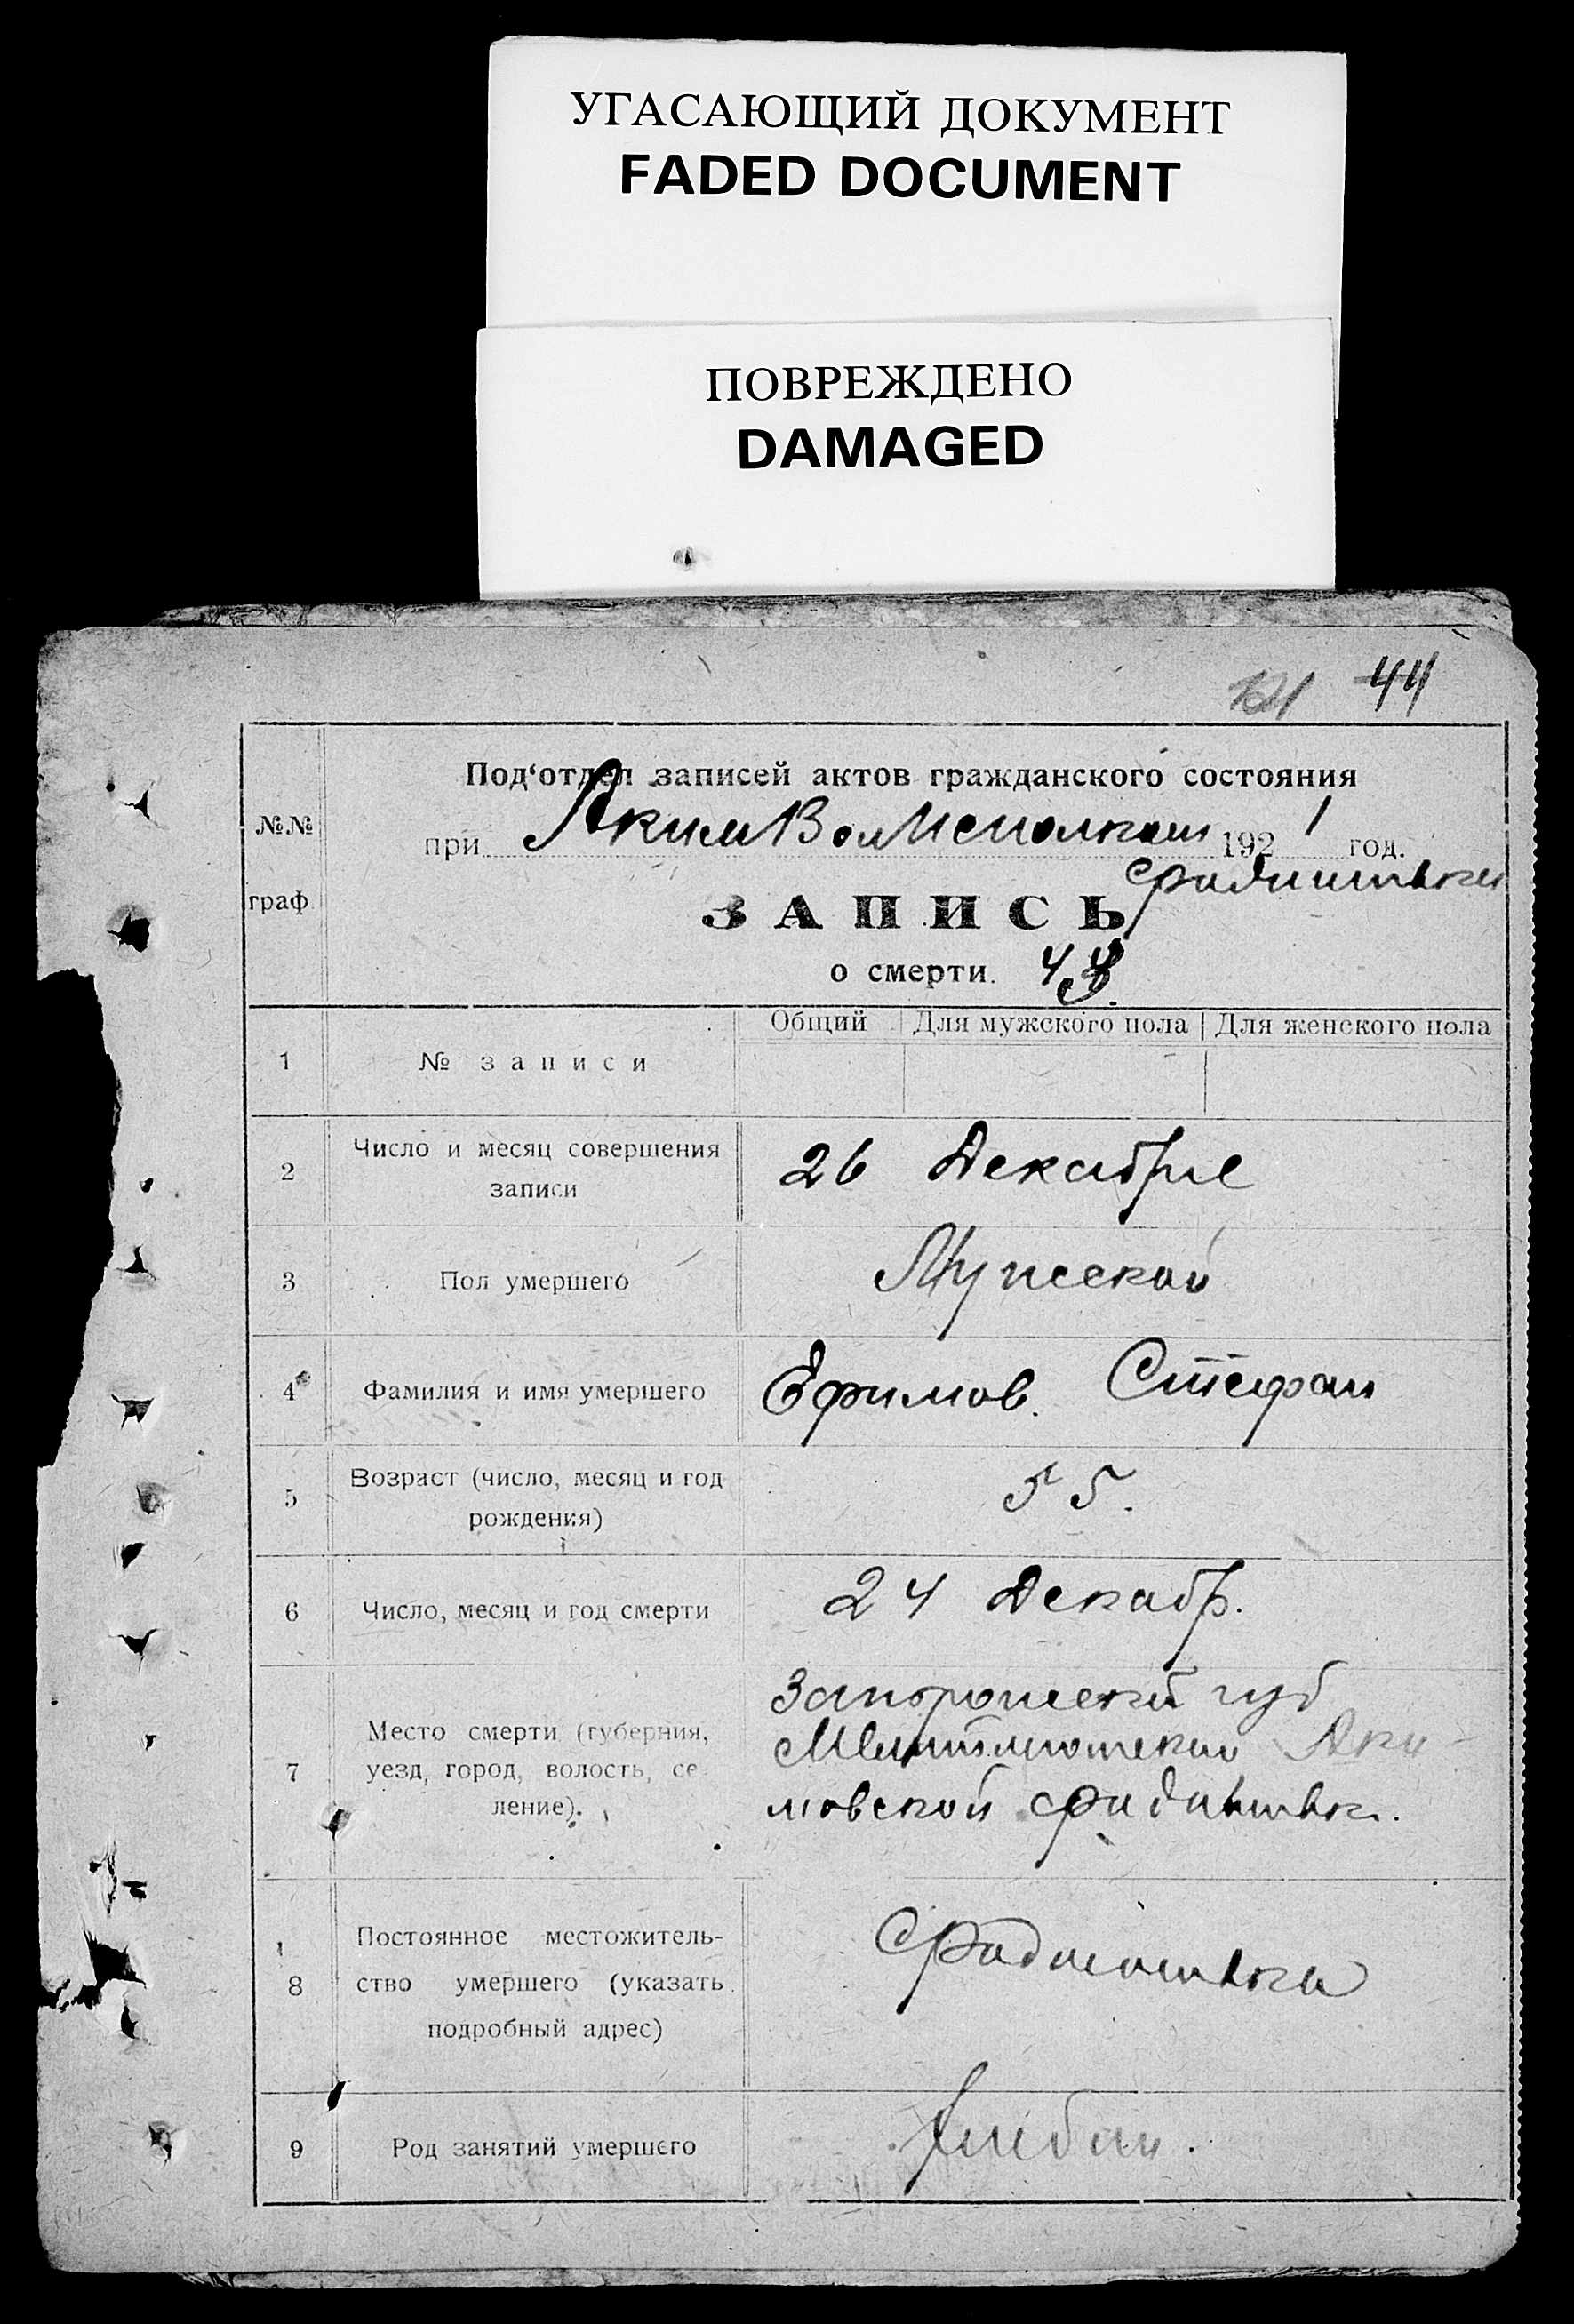 УГАСАЮЩИЙ ДОКУМЕНТ
FADED DOCUMENT
ПОВРЕЖДЕНО
DAMAGED
121 44
Под‘отдел записей актов гражданского состояния
№№
при Аким Вол Исполком 1921 год.
граф
ЗАПИСЬ
о смерти. 44
Общий Для мужского пола Для женского пола
1 № записи
2 Число и месяц совершения
записи
26 Декабрє
3 Пол умершего Мужской
4 Фамилия и имя умершего Ефимов. Стефан
5 Возраст (число, месяц и год
рождения)
55.
6 Число, месяц и год смерти 24 Декабр.
7 Место смерти (губерния,
уезд, город, волость, се
ление).
Запорожской губ
Аки-
мовской
8 Постоянное местожитель-
ство умершего (указать
подробный адрес)
9 Род занятий умершего